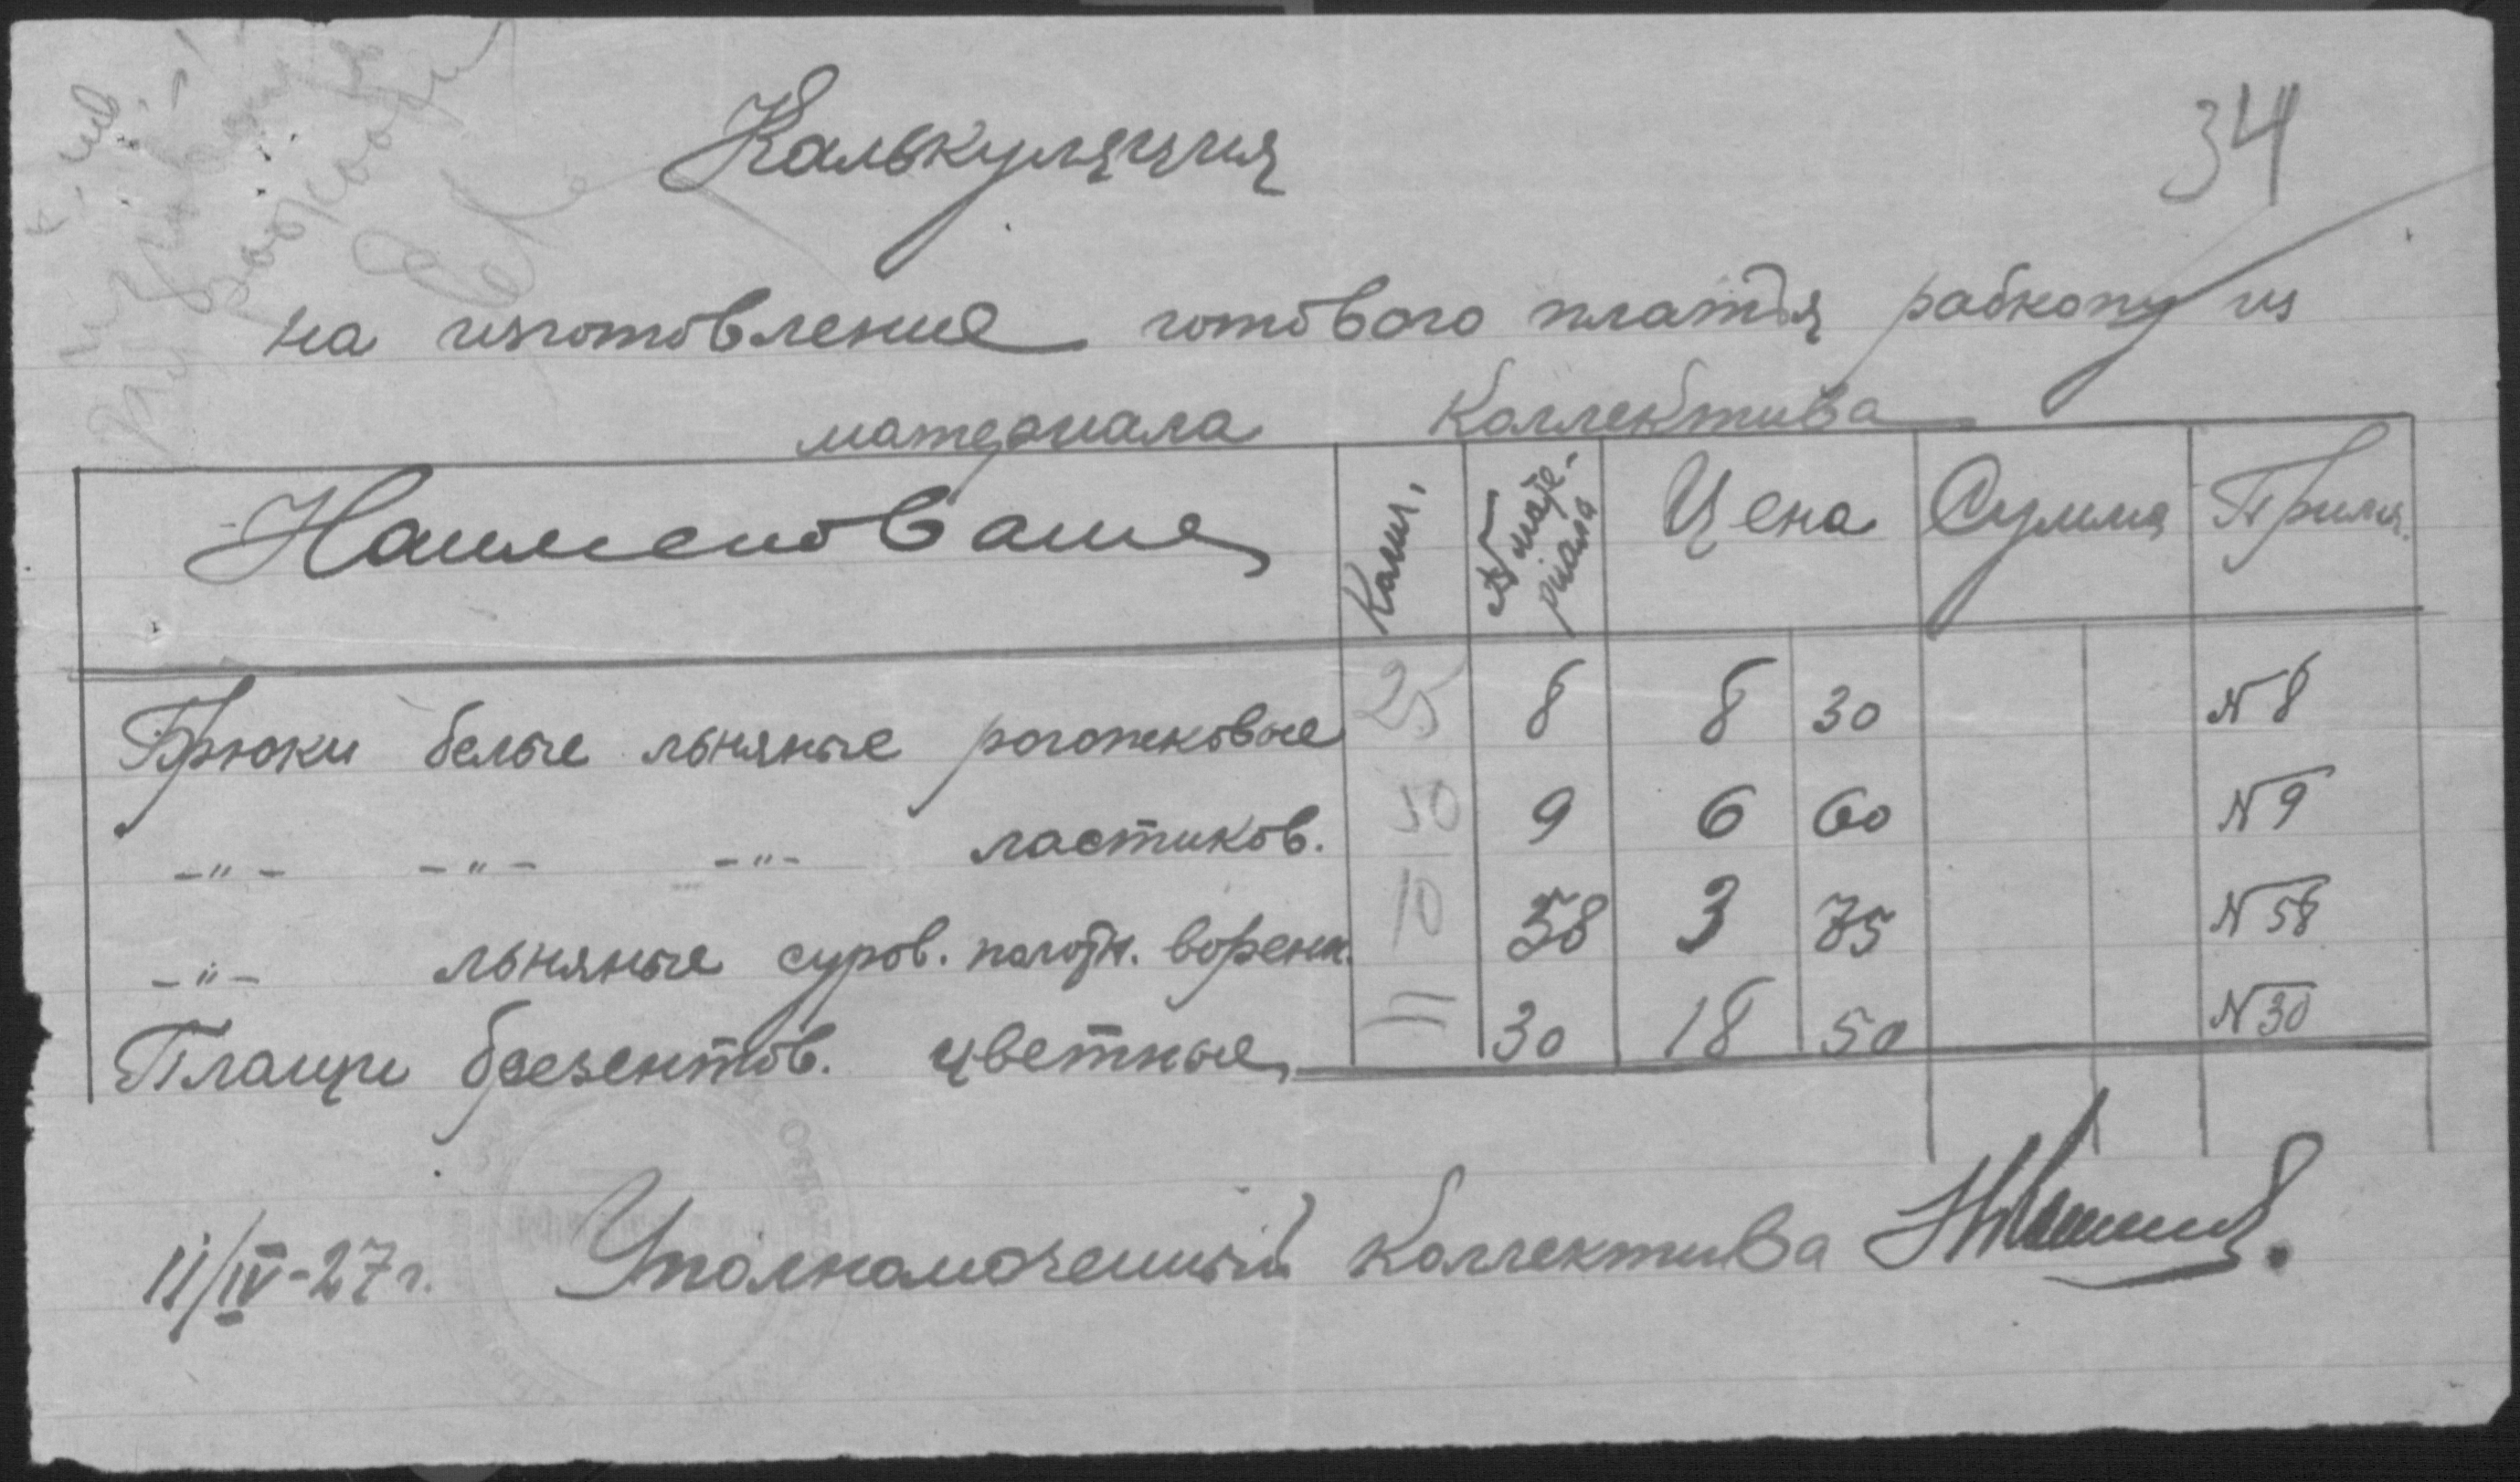 34
Калькуляция
на изготовление готового платья рабкопу из
материала Коллектива
Наименование Колич. № мате-риала Цена Сумма Прим.
Брюки белые льняные рогожковые 25 8 8 30 № 8
-"- -"- -"- ластиков. 50 9 6 60 № 9
-"- льняные суров. полотн. варенн. 10 58 3 75 № 58
Плащи брезентов. цветные = 30 18 50 № 30
11/IV-27 г. Уполномоченный Коллектива